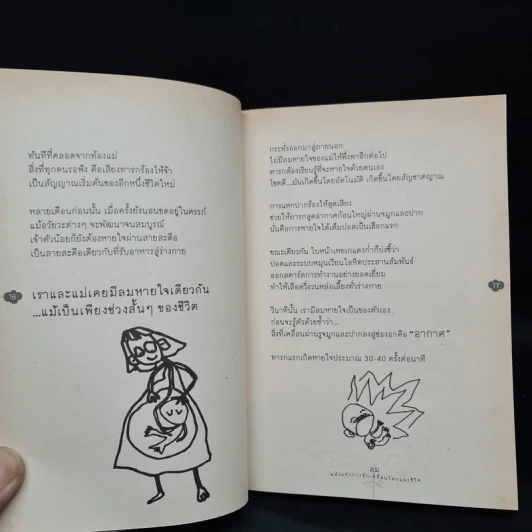 ทันทีที่คลอดจากท้องแม่
สิ่งที่ทุกคนรอฟัง คือเสียงทารกร้องให้จ้า
เป็นสัญญาณเริ่มต้นของอีกหนึ่งชีวิตใหม่
หลายเดือนก่อนนั้น เมื่อครั้งยังนอนขดอยู่ในครรภ์
แม้อวัยวะต่างๆ จะพัฒนาจนสมบูรณ์
เจ้าตัวน้อยก็ยังต้องหายใจผ่านสายสะดือ
เป็นสายสะดือเดียวกับที่รับอาหารสู่ร่างกาย
เราและแม่เคยมีลมหายใจเดียวกัน
...แม้เป็นเพียงช่วงสั้นๆ ของชีวิต
16
กระทั่งออกมาสู่ภายนอก
ไม่มีลมหายใจของแม่ให้พึ่งพาอีกต่อไป
ทารกต้องเรียนรู้ที่จะหายใจด้วยตนเอง
โชคดี...มันเกิดขึ้นโดยอัตโนมัติ เกิดขึ้นโดยสัญชาตญาณ
การแหกปากร้องให้สุดเสียง
ช่วยให้ทารกสูดอากาศก้อนใหญ่ผ่านจมูกและปาก
นั่นคือการหายใจได้เต็มปอดเป็นเฮือกแรก
ขณะเดียวกัน ใบหน้าเหยเกแดงก่ำก็บ่งชี้ว่า
ปอดและระบบหมุนเวียนโลหิตประสานสัมพันธ์
ออกสตาร์ตการทำงานอย่างยอดเยี่ยม
ทำให้เลือดวิ่งวนหล่อเลี้ยงทั่วร่างกาย
วินาทีนั้น เรามีลมหายใจเป็นของตัวเอง
ก่อนจะรู้ตัวด้วยซ้ำว่า...
สิ่งที่เคลื่อนผ่านรูจมูกและปากลงสู่ช่องอกคือ "อากาศ"
ทารกแรกเกิดหายใจประมาณ 30-40 ครั้งต่อนาที
17
ลม